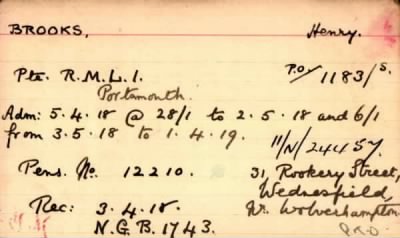 BROOKS, Henry.
Pte. R.M.L.I. P.O./1183/S.
Portsmouth.
Adm: 5.4.18 @ 28/1 to 2.5.18 and 6/1
from 3.5.18 to 1.4.19.
11/N/24457.
Pens. No. 12210. 31, Rookery Street,
Wednesfield,
Rec: 3.4.18. Nr. Wolverhampton
N.G.B. 1743.
P.T.O.